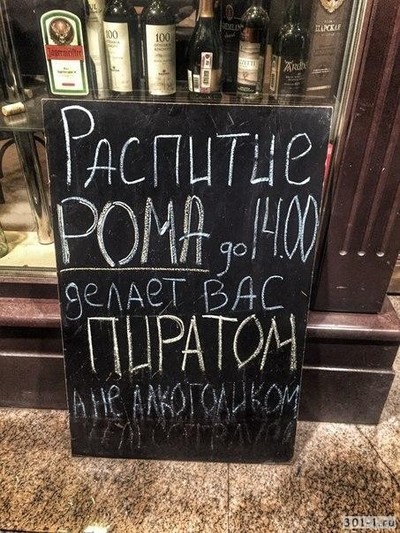 Jägermeister
100
100
ЦАРСКАЯ
Ardbeg
РАСПИТИЕ
РОМА до 14.00
делает ВАС
ПИРАТОМ
А НЕ АЛКОГОЛИКОМ
301-1.ru